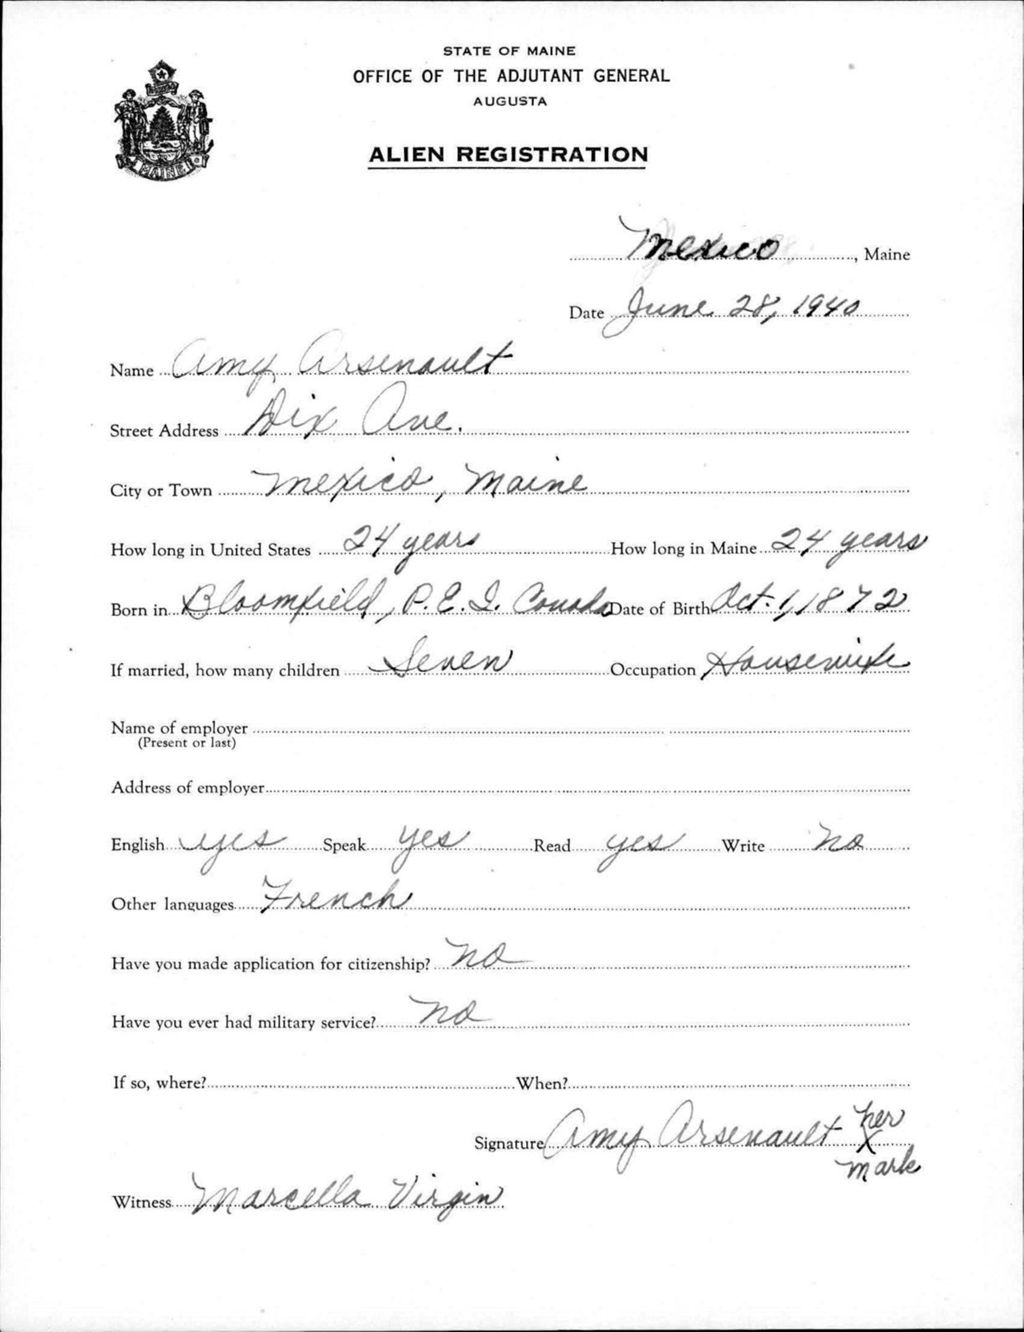 STATE OF MAINE
OFFICE OF THE ADJUTANT GENERAL
AUGUSTA
MAINE
ALIEN REGISTRATION
Mexico, Maine
Date June 28, 1940
Name Amy Arsenault
Street Address Dix Ave.
City or Town Mexico, Maine
How long in United States 24 years How long in Maine 24 years
Born in Bloomfield, P.E.I. Canada Date of Birth Oct. 1, 1872
If married, how many children Seven Occupation Housewife
Name of employer
(Present or last)
Address of employer
English yes Speak yes Read yes Write no
Other languages French
Have you made application for citizenship? no
Have you ever had military service? no
If so, where? When?
Signature Amy Arsenault her
X
mark
Witness Marcella Virgin